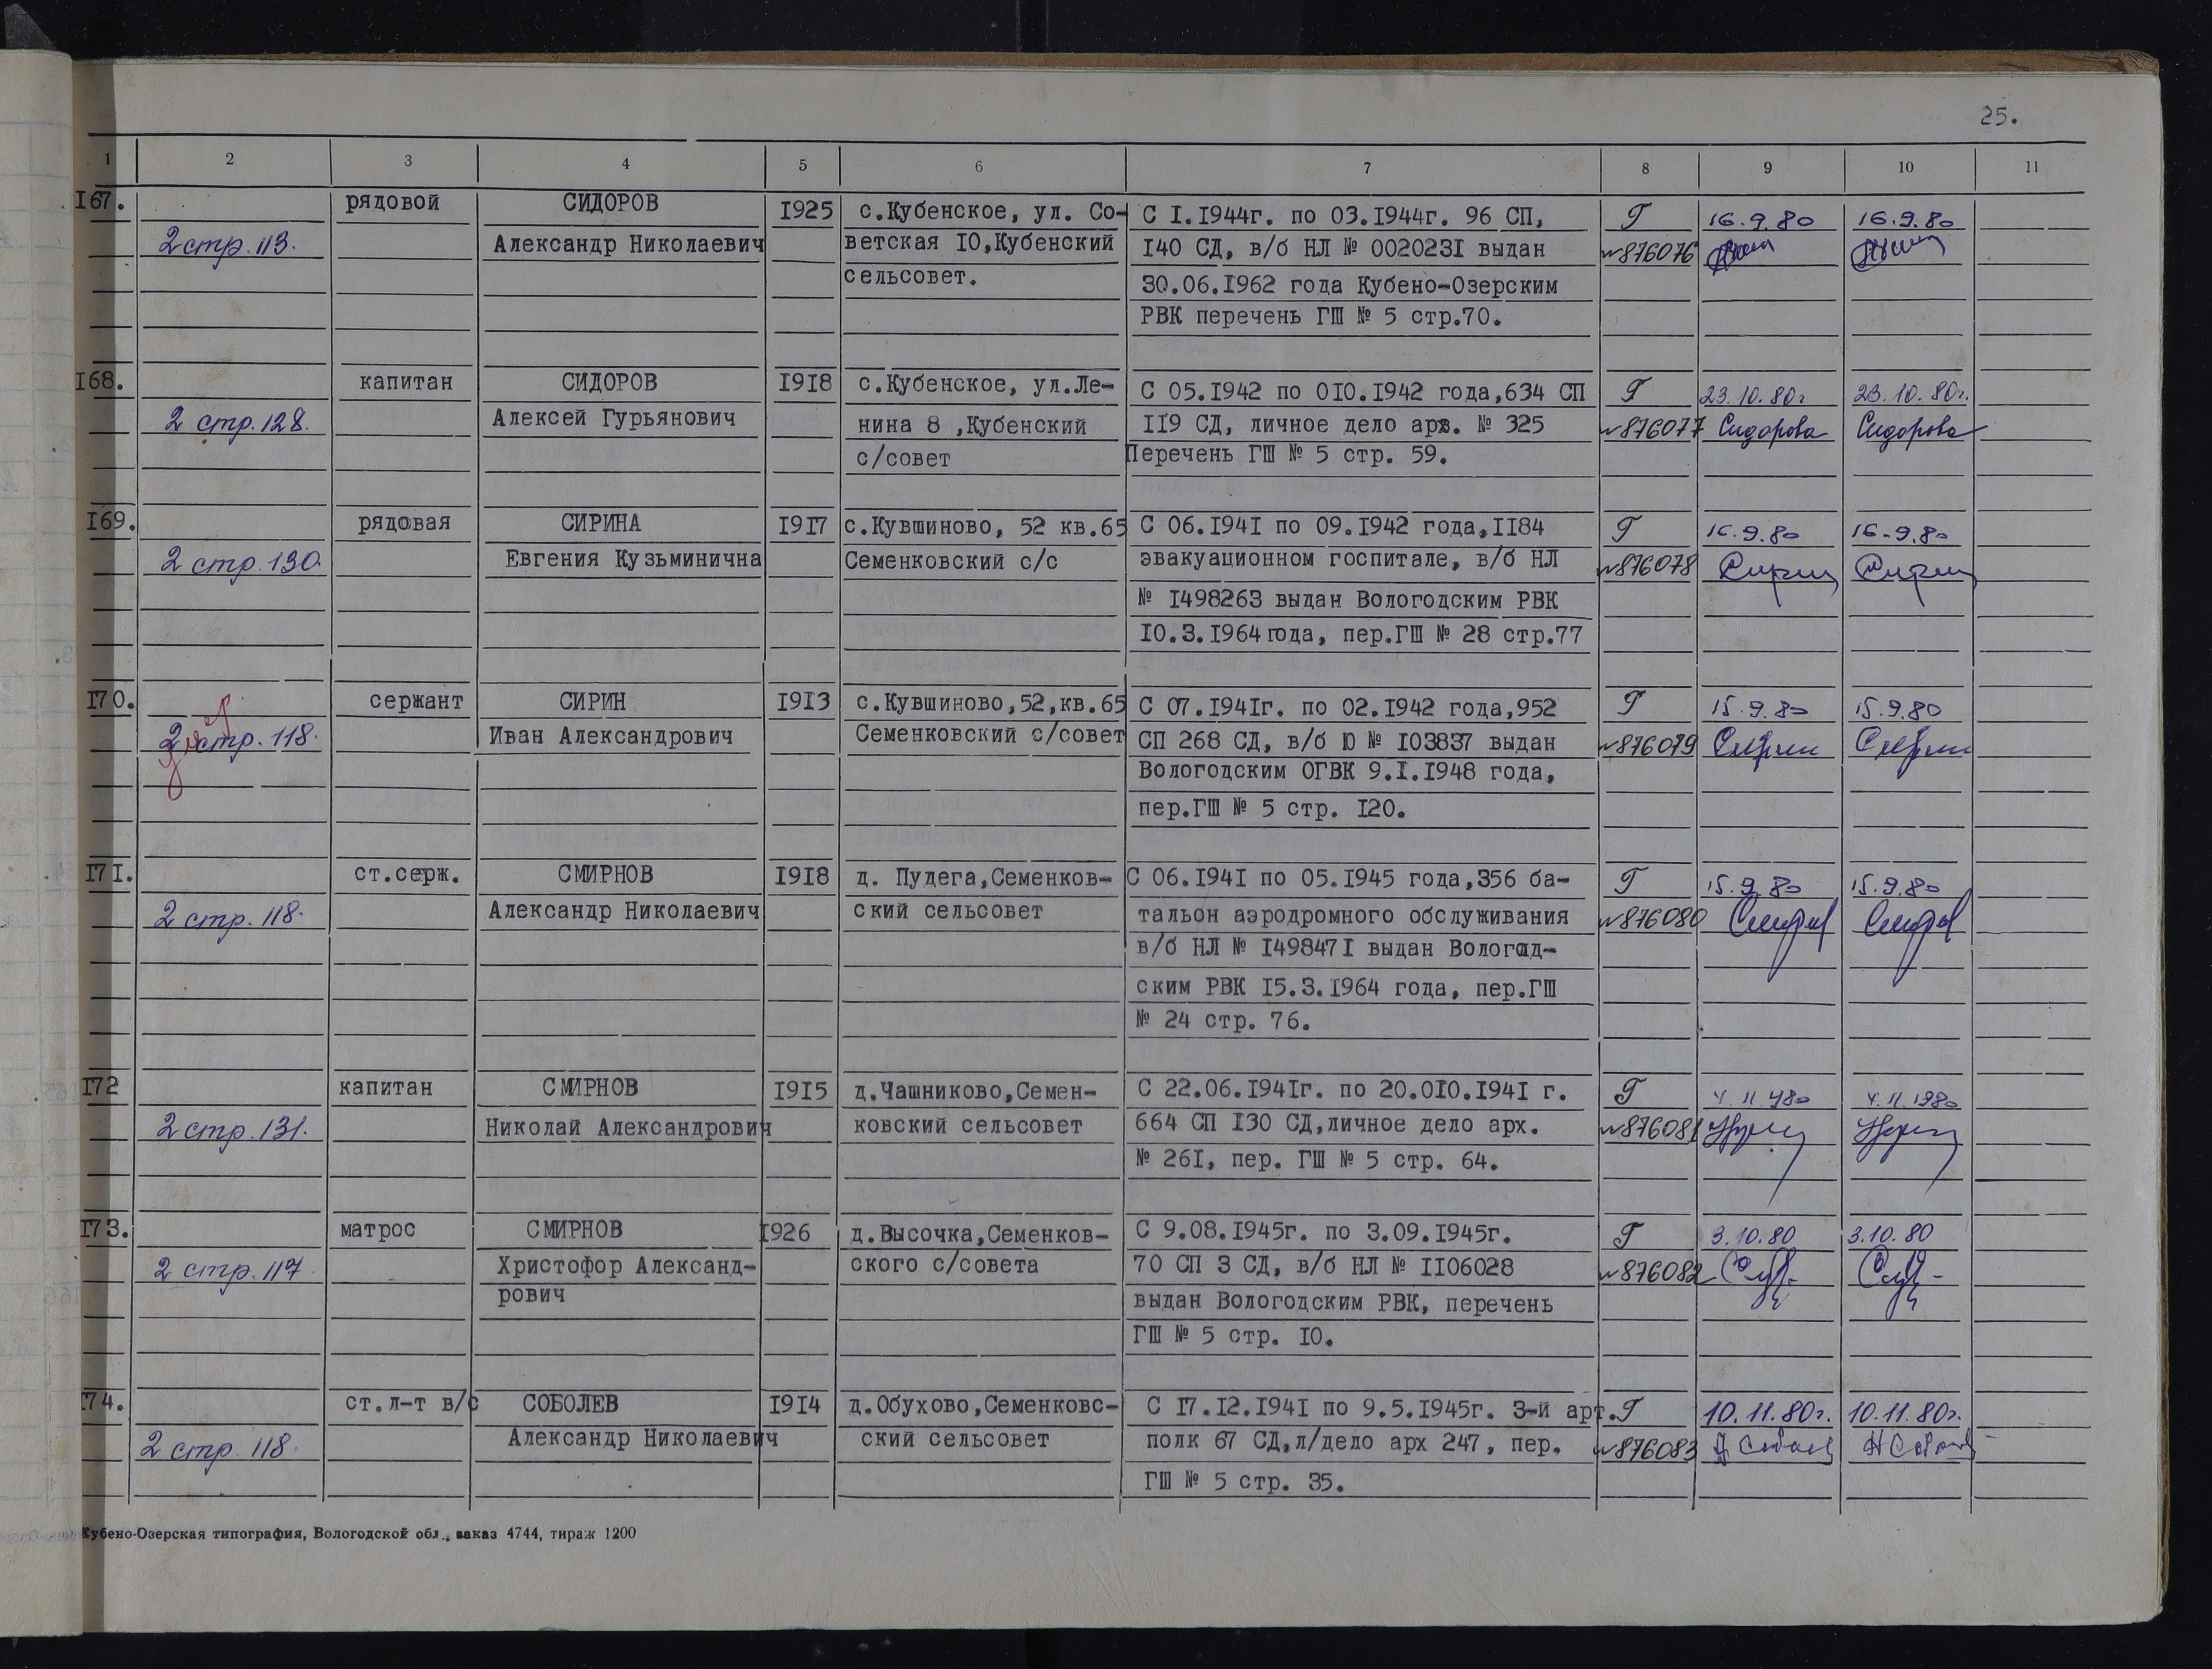 25.
1 2 3 4 5 6 7 8 9 10 11
167. рядовой СИДОРОВ 1925 с.Кубенское, ул. Со- С 1.1944г. по 03.1944г. 96 СП, Г 16.9.80 16.9.80
2 стр. 113. Александр Николаевич ветская 10,Кубенский 140 СД, в/б НЛ № 0020231 выдан №876076
сельсовет. 30.06.1962 года Кубено-Озерским
РВК перечень ГШ № 5 стр.70.
168. капитан СИДОРОВ 1918 с.Кубенское, ул.Ле- С 05.1942 по 010.1942 года,634 СП Г 23.10.80г 23.10.80г.
2 стр. 128. Алексей Гурьянович нина 8 ,Кубенский 119 СД, личное дело арх. № 325 №876077 Сидорова Сидорова
с/совет Перечень ГШ № 5 стр. 59.
169. рядовая СИРИНА 1917 с.Кувшиново, 52 кв.65 С 06.1941 по 09.1942 года,1184 Г 16.9.80 16.9.80
2 стр. 130. Евгения Кузьминична Семенковский с/с эвакуационном госпитале, в/б НЛ №876078
№ 1498263 выдан Вологодским РВК
10.3.1964 года, пер.ГШ № 28 стр.77
170. сержант СИРИН 1913 с.Кувшиново,52,кв.65 С 07.1941г. по 02.1942 года,952 Г 15.9.80 15.9.80
2 стр. 118. Иван Александрович Семенковский с/совет СП 268 СД, в/б Ю № 103837 выдан №876079 Сирин Сирин
Вологодским ОГВК 9.1.1948 года,
пер.ГШ № 5 стр. 120.
171. ст.серж. СМИРНОВ 1918 д. Пудега,Семенков- С 06.1941 по 05.1945 года,356 ба- Г 15.9.80 15.9.80
2 стр. 118. Александр Николаевич ский сельсовет тальон аэродромного обслуживания №876080
в/б НЛ № 1498471 выдан Вологод-
ским РВК 15.3.1964 года, пер.ГШ
№ 24 стр. 76.
172 капитан СМИРНОВ 1915 д.Чашниково,Семен- С 22.06.1941г. по 20.010.1941 г. Г 4.11.1980 4.11.1980
2 стр. 131. Николай Александрович ковский сельсовет 664 СП 130 СД,личное дело арх. №876081
№ 261, пер. ГШ № 5 стр. 64.
173. матрос СМИРНОВ 1926 д.Высочка,Семенков- С 9.08.1945г. по 3.09.1945г. Г 3.10.80 3.10.80
2 стр. 117 Христофор Александ- ского с/совета 70 СП 3 СД, в/б НЛ № 1106028 №876082
рович выдан Вологодским РВК, перечень
ГШ № 5 стр. 10.
174. ст.л-т в/с СОБОЛЕВ 1914 д.Обухово,Семенковс- С 17.12.1941 по 9.5.1945г. 3-й арт. Г 10.11.80г. 10.11.80г.
2 стр. 118. Александр Николаевич ский сельсовет полк 67 СД,л/дело арх 247, пер. №876083
ГШ № 5 стр. 35.
Кубено-Озерская типография, Вологодской обл., заказ 4744, тираж 1200